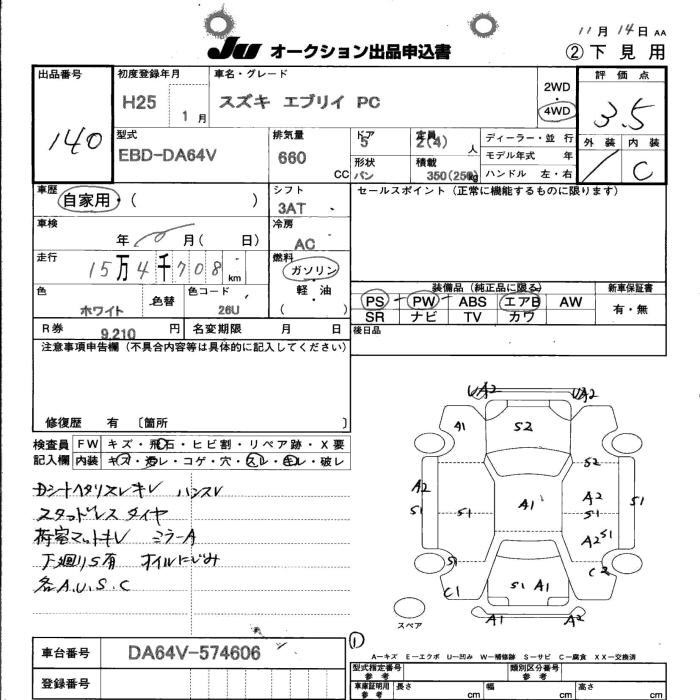 11月14日 AA
JU オークション出品申込書
② 下見用
出品番号
140
初度登録年月
H25 1月
車名・グレード
スズキ エブリイ PC
2WD
4WD
評価点
3.5
外装 内装
C
型式
EBD-DA64V
排気量
660 CC
ドア
5
定員
2(4) 人
形状
バン
積載
350(250) kg
ディーラー・並行
モデル年式 年
ハンドル 左・右
車歴
自家用・( )
シフト
3AT
セールスポイント(正常に機能するものに限ります)
車検
年 月( 日)
冷房
AC
走行
15万4千708km
燃料
ガソリン
軽・油
( )
色
ホワイト
色替
色コード
26U
装備品(純正品に限る)
新車保証書
PS PW ABS エアB AW
SR ナビ TV カワ
有・無
R券 9,210円
名変期限 月 日
後日品
注意事項申告欄(不具合内容等は具体的に記入してください)
修復歴 有 〔箇所 〕
検査員記入欄
FW キズ・飛石・ヒビ割・リペア跡・X要
内装 キズ・汚レ・コゲ・穴・スレ・キレ・破レ
Dシートヘタリスレキレ ハンスレ
スタッドレスタイヤ
荷室マットキレ ミラーA
下廻りS有 オイルにじみ
各A.U.S.C
UA2 UA2
A1 S2
S2
A2 S1
S1 A1 A2 S1 S1
A2 S1
S1 C2
C1 S1 A1
A1 A2
スペア
①
A-キズ E-エクボ U-凹み W-補修跡 S-サビ C-腐食 XX-交換済
車台番号
DA64V-574606
登録番号
型式指定番号 参考
類別区分番号 参考
車庫証明用 参考
長さ cm 幅 cm 高さ cm